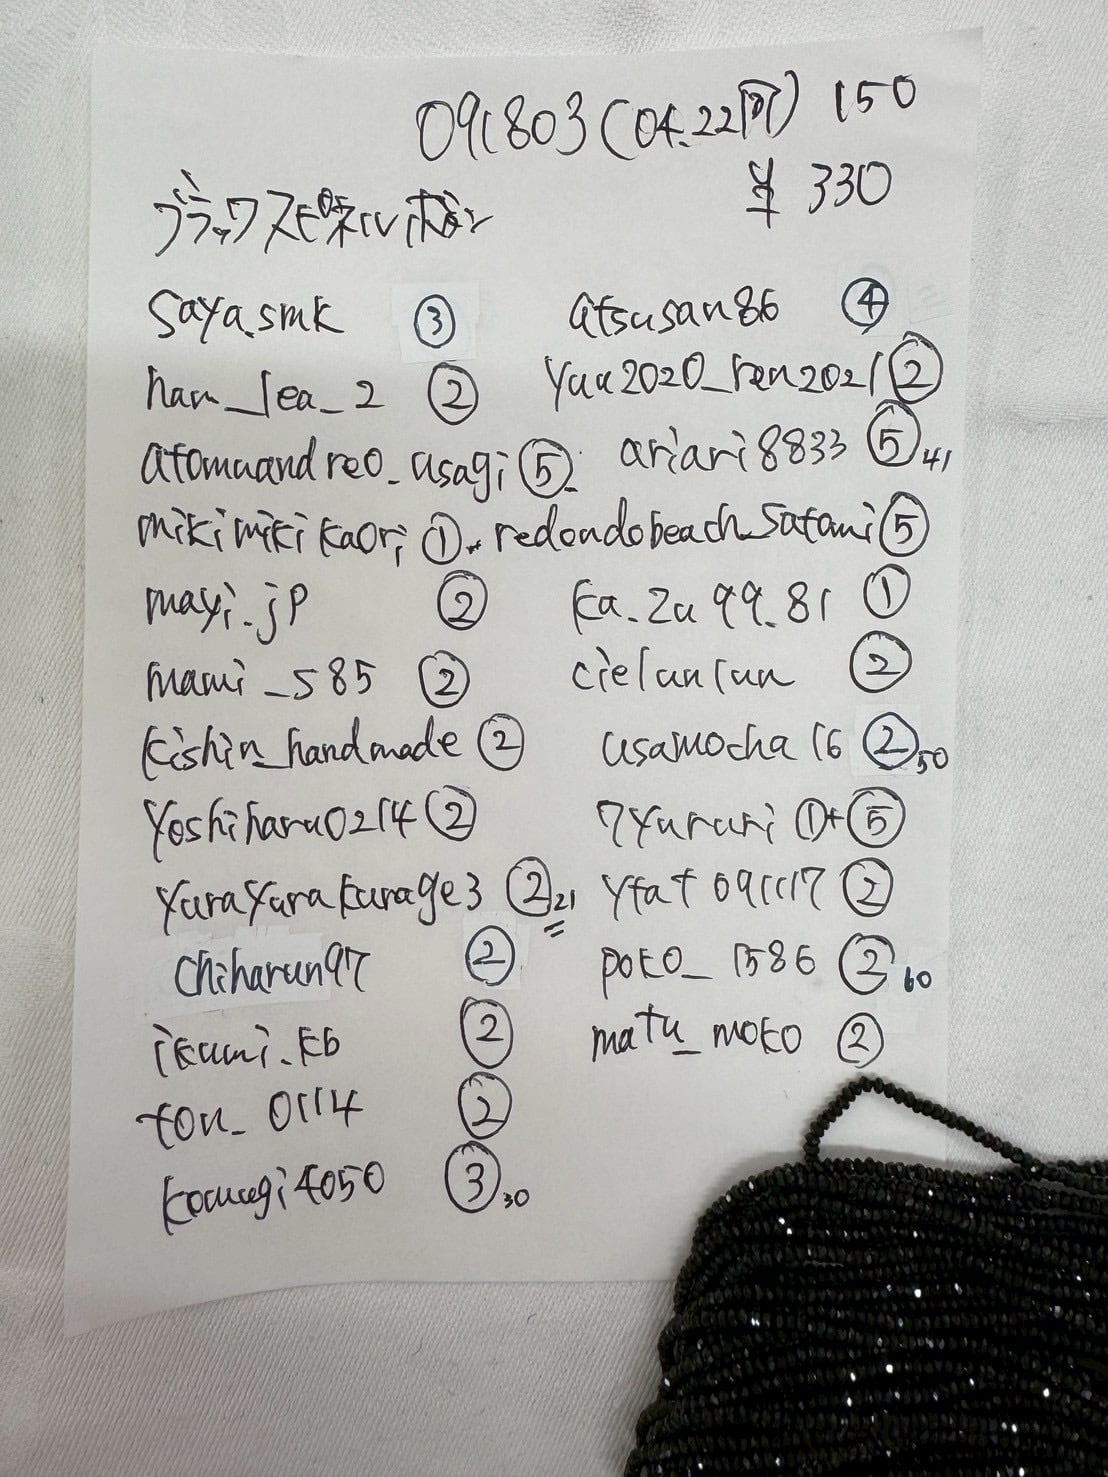 091803(04.22可) 150
¥ 330
ブラックスピネルボタン
saya.smk ③
han_lea_2 ②
atomuandreo_usagi ⑤
mikimikikaori ①
mayi.jp ②
mami_585 ②
kishin_handmade ②
yoshiharu0214 ②
yurayurakurage3 ② 21
chiharun97 ②
ikumi.kb ②
ton_0114 ②
komugi4050 ③ 30
atsusan86 ④
yuu2020_ren2021 ②
ariari8833 ⑤ 41
redondobeach_satomi ⑤
ka_zu99_81 ①
cielunlun ②
usamocha16 ② 50
7yururi ①+⑤
ytat091117 ②
poko_1586 ② 60
matu_moko ②